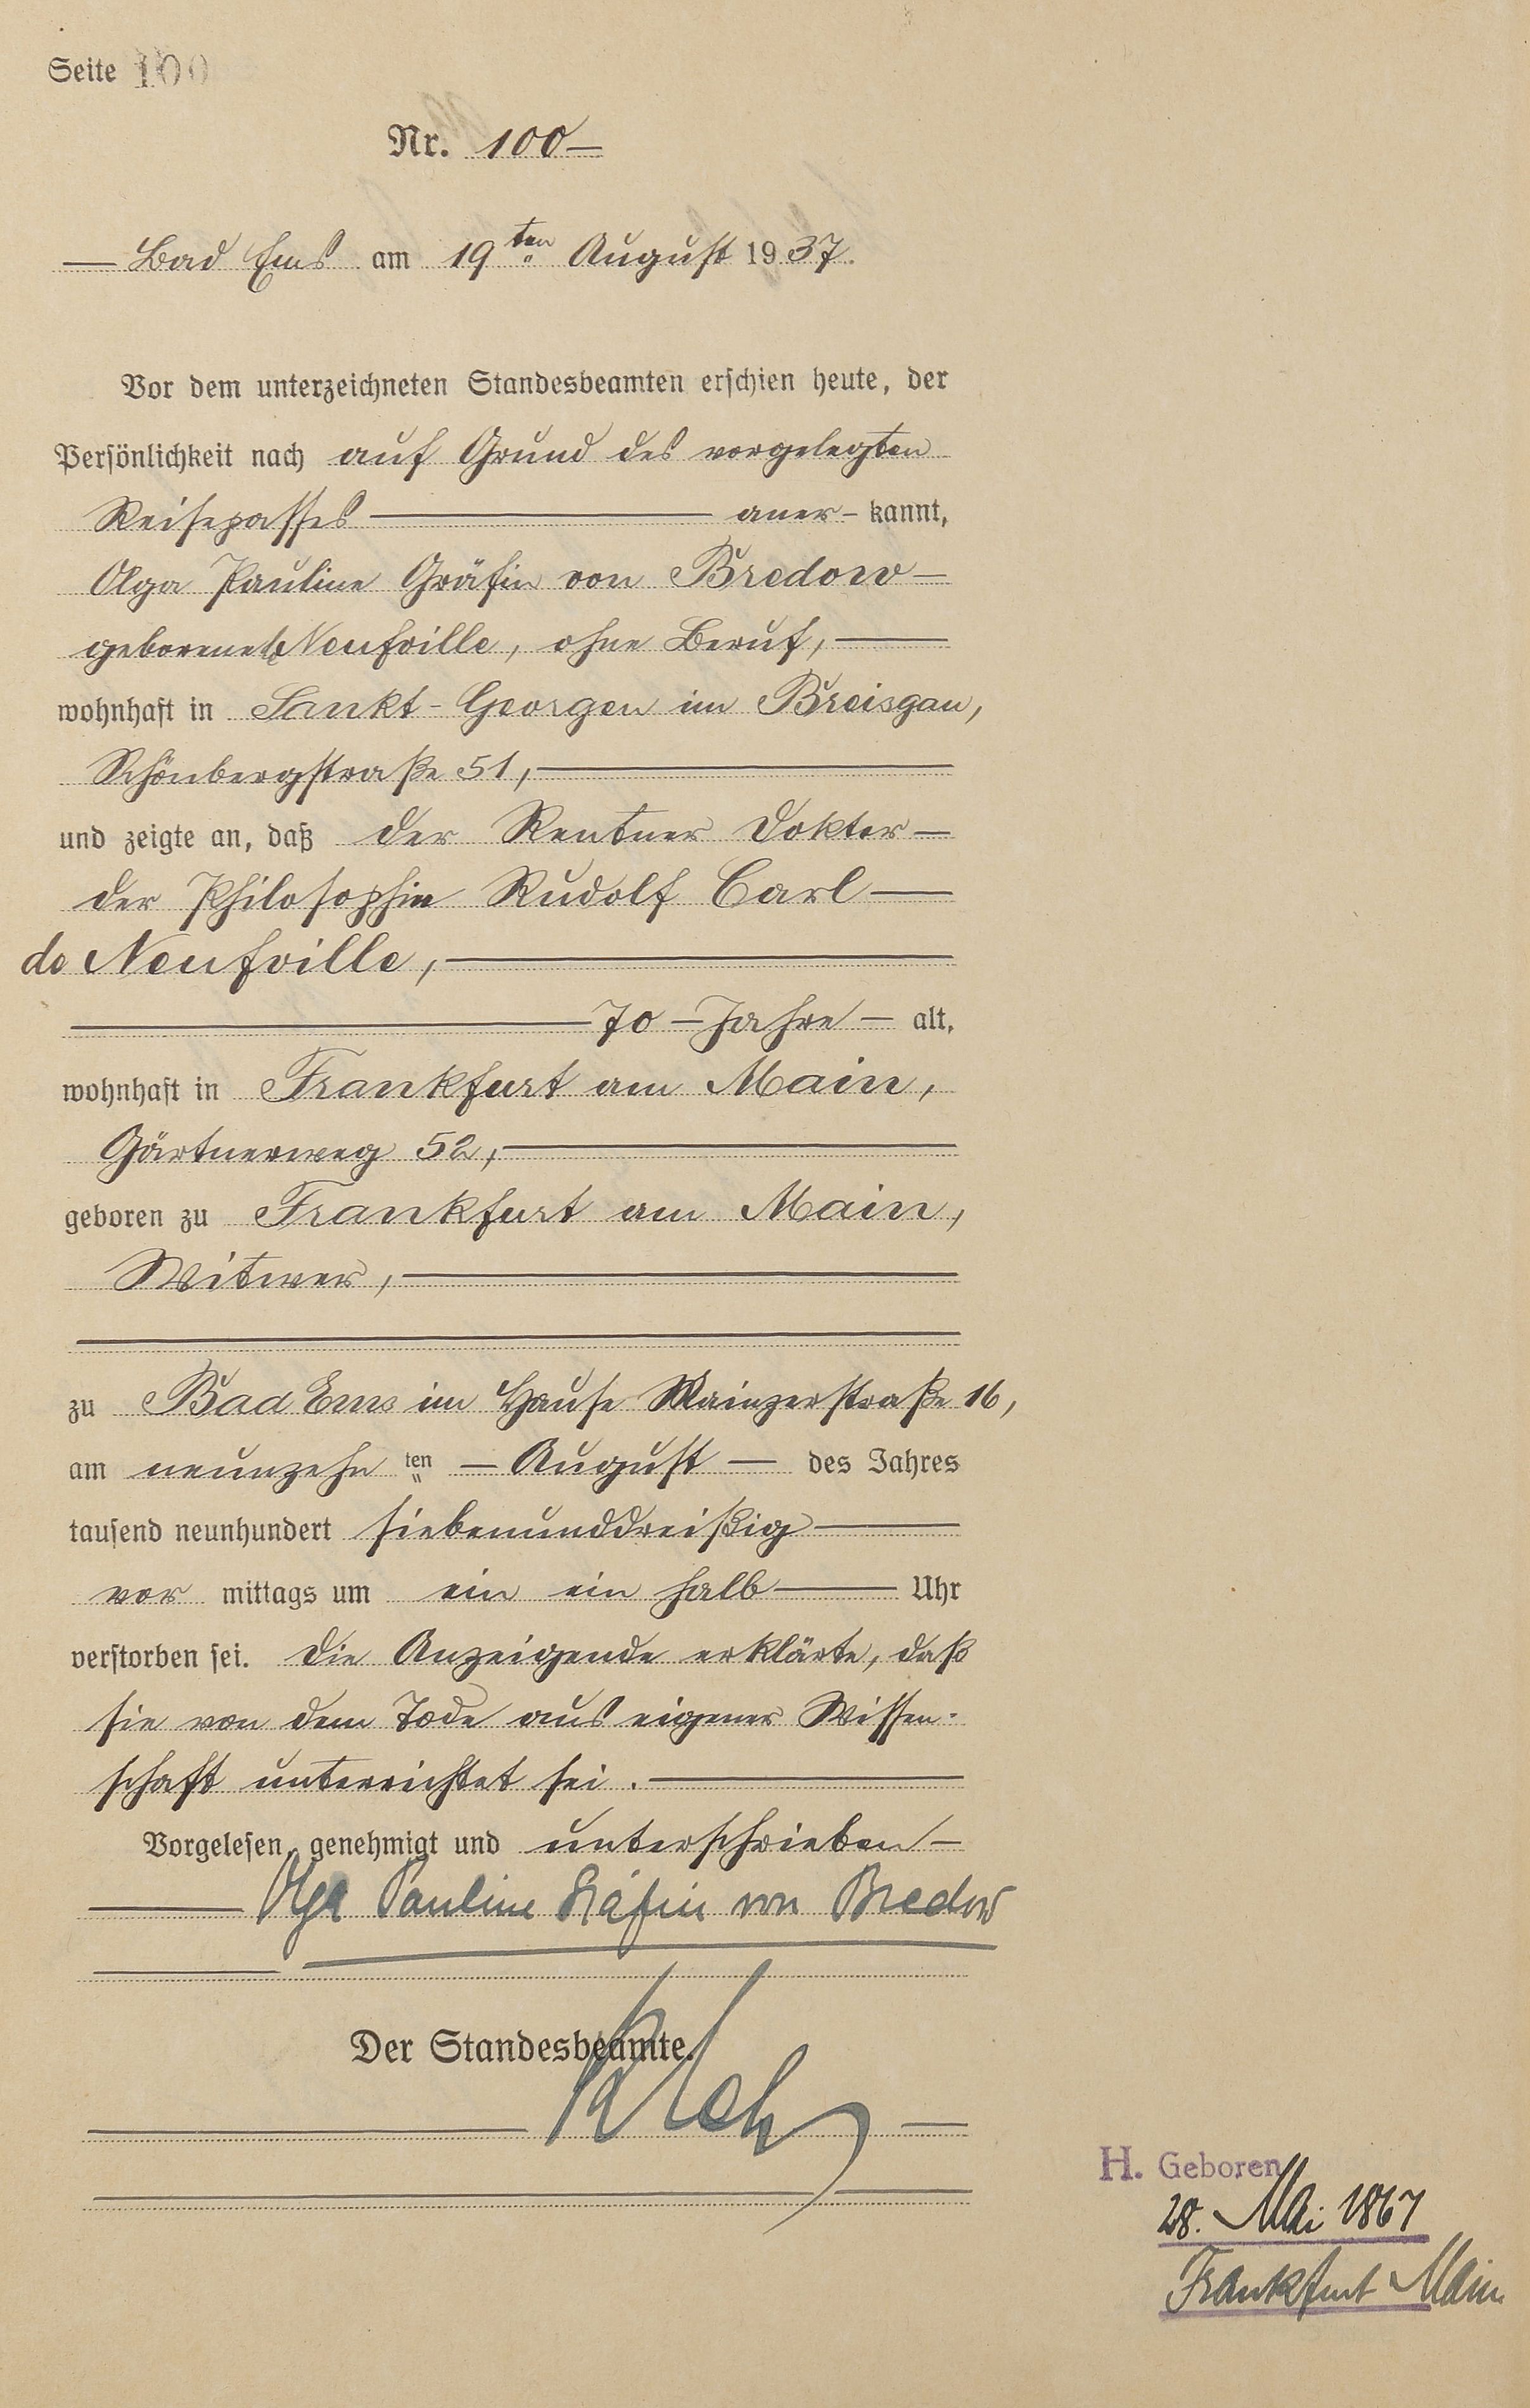 Seite 100
Nr. 100 —
— Bad Ems am 19ten August 1937.
Vor dem unterzeichneten Standesbeamten erschien heute, der
Persönlichkeit nach auf Grund des vorgelegten
Reisepasses — aner- kannt,
Olga Pauline Gräfin von Bredow —
geborene de Neufville, ohne Beruf, —
wohnhaft in Sankt-Georgen im Breisgau,
Schönbergstraße 51, —
und zeigte an, daß der Rentner Doktor —
der Philosophie Rudolf Carl —
de Neufville, —
— 70 — Jahre — alt,
wohnhaft in Frankfurt am Main,
Gärtnerweg 52, —
geboren zu Frankfurt am Main,
Witwer, —
zu Bad Ems im Hause Mainzerstraße 16,
am neunzehn ten — August — des Jahres
tausend neunhundert siebenunddreißig —
vor mittags um ein ein halb — Uhr
verstorben sei. Die Anzeigende erklärte, daß
sie von dem Tode aus eigener Wissen-
schaft unterrichtet sei. —
Vorgelesen, genehmigt und unterschrieben —
— Olga Pauline Gräfin von Bredow
Der Standesbeamte.
H. Geboren
28. Mai 1867
Frankfurt Main